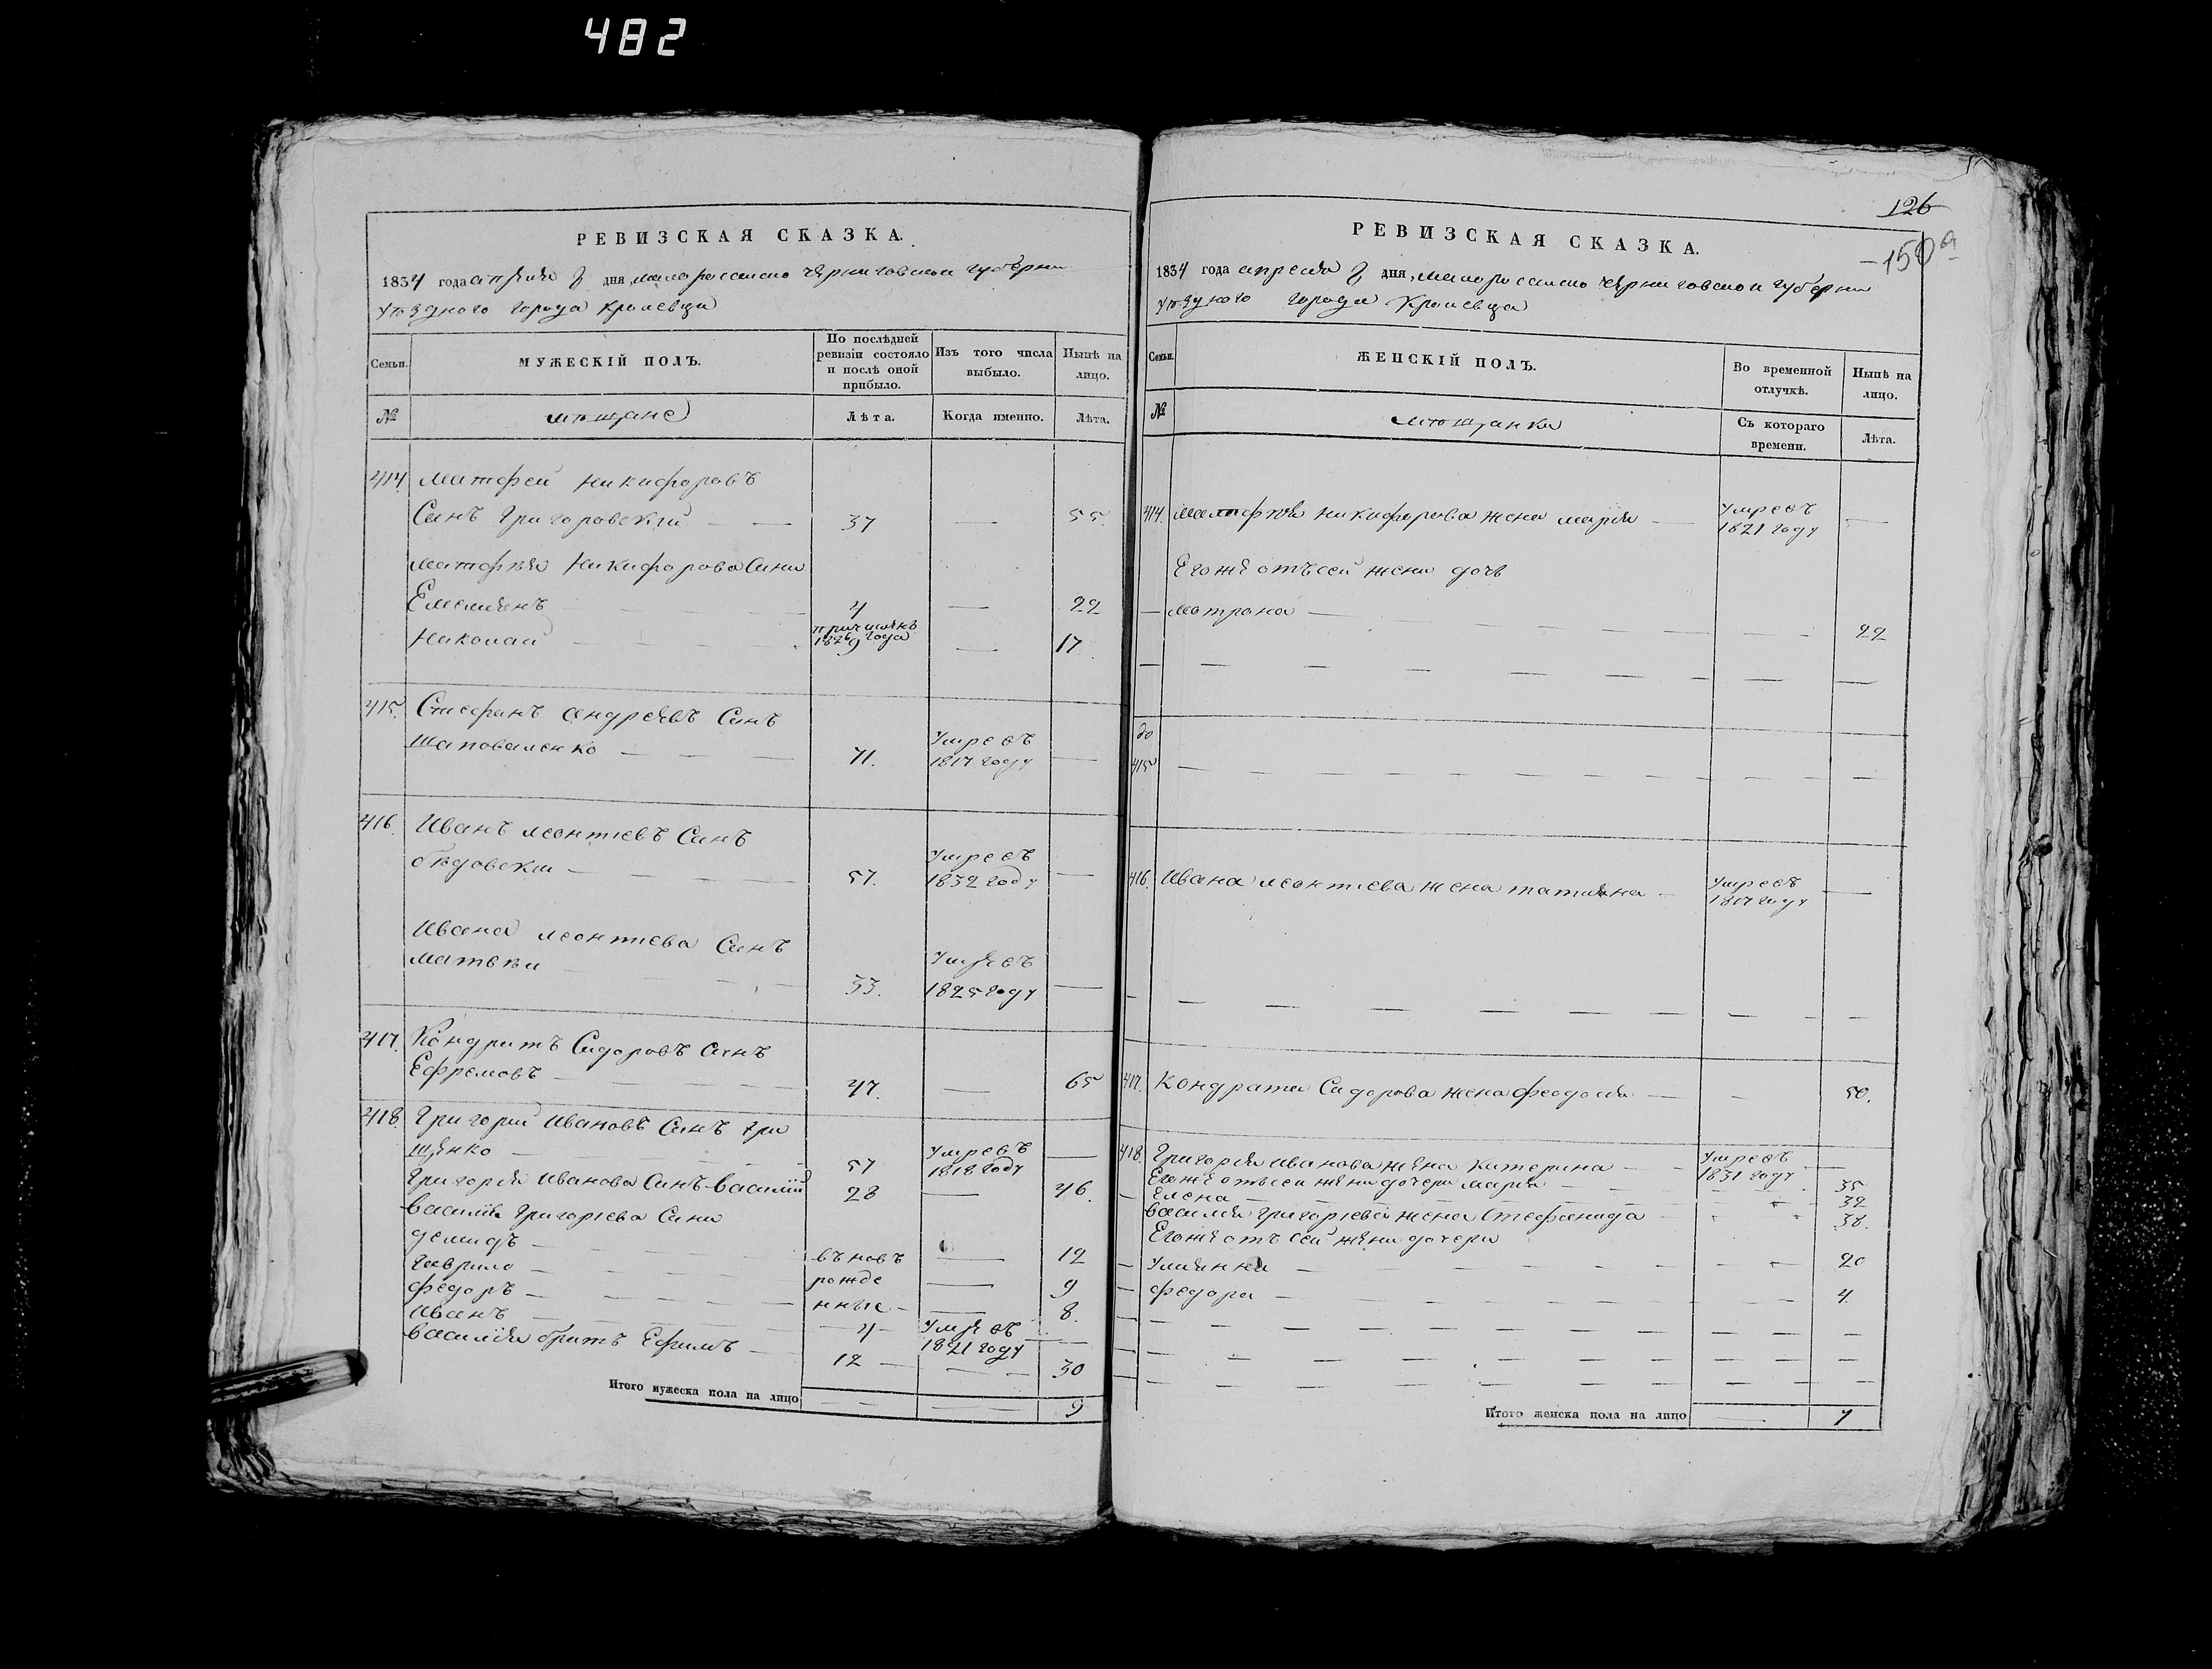 482
РЕВИЗСКАЯ СКАЗКА.
1834 года апреля дня, малороссиско Черниговской губерни
уѣзднаго города Кролевца
Семьи.
МУЖЕСКІЙ ПОЛЪ.
По послѣдней ревизіи состояло и послѣ оной прибыло.
Изъ того числа выбыло.
Нынѣ на лицо.
№
мѣщане
Лѣта.
Когда именно.
Лѣта.
414 Матфей Никифоровъ
Синъ Григоровский 37 — 55
Матфѣя Никифорова Сини
Емелиянъ 4 — 22
причисленъ
1826 года
Николай 9 — 17
415. Стефанъ Андреевъ Синъ
Шаповаленко 71. умре въ 1817 году —
416. Иванъ Леонтиевъ Синъ
бѣдовски 57. умре въ 1832 году —
Ивана Леонтиева Синъ
Матвѣи 33. умре въ 1825 году —
417. Кондратъ Сидоровъ Синъ
Ефремовъ 47. — 65
418. Григорий Ивановъ Синъ Гри
щенко 57 умре въ 1818 году —
Григория Иванова Синъ Василий 28 — 46.
Василия Григориева Сини
Демидъ въ новъ — 12
Гаврило рожде — 9
Федоръ нные — 8.
Иванъ 4 умре въ 1821 году —
Василия братъ Ефимъ 12 — 30
Итого мужеска пола на лицо — — 9
126
150а
РЕВИЗСКАЯ СКАЗКА.
1834 года апреля дня, малороссиско Черниговской губерни
уѣзднаго города Кролевца
Семьи.
ЖЕНСКІЙ ПОЛЪ.
Во временной отлучкѣ.
Нынѣ на лицо.
№
мѣщанки
Съ котораго времени.
Лѣта.
414. Матфѣя Никифорова жена Мария умре въ 1821 году —
Его же отъ сей жени дочь
Матрона — 22
до
415
416. Ивана Леонтиева жена Татияна умре въ 1817 году —
417. Кондрата Сидорова жена Феодосия — 50.
418. Григория Иванова жена Катерина умре въ 1831 году —
Его же отъ сей жени дочери Мария 35
Елена — 32
Василия Григориева жена Стефанида 38.
Его же отъ сей жени дочери
Улиянна — 20
Федора — 4.
Итого женска пола на лицо — 7